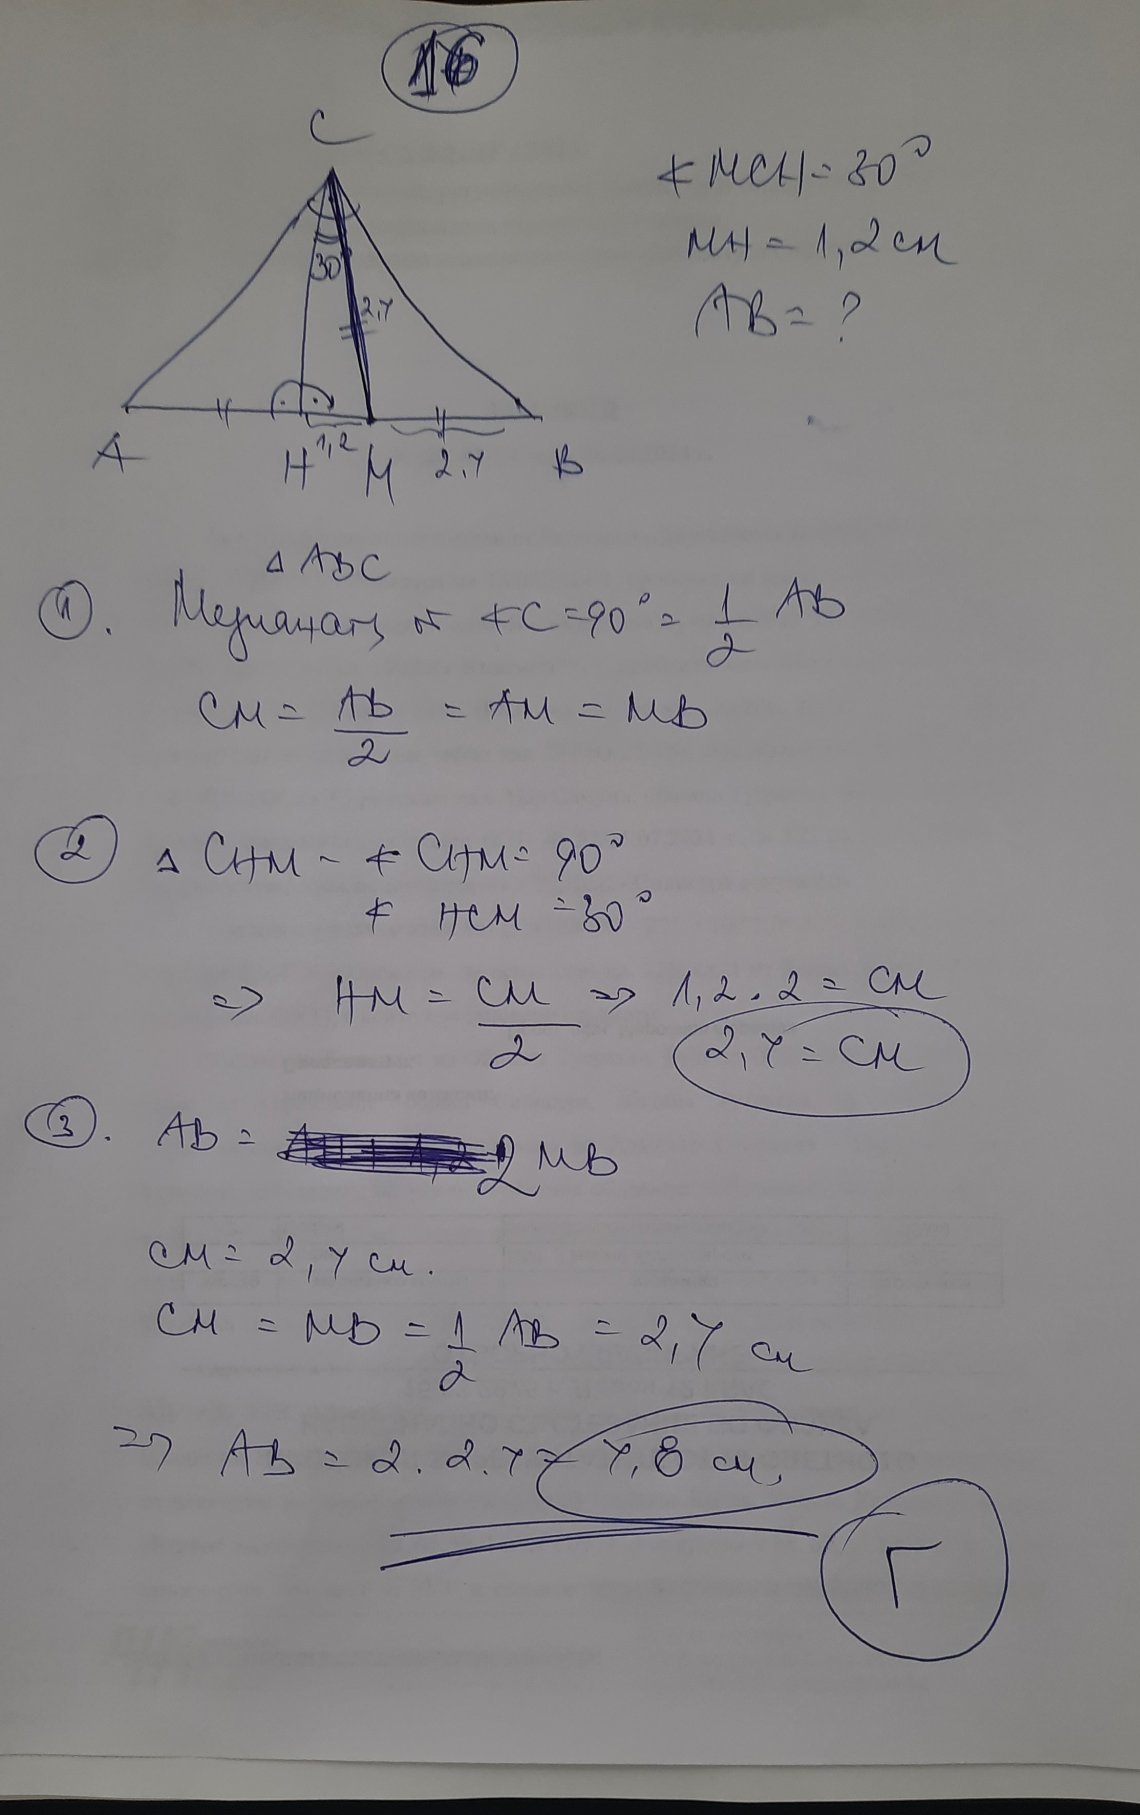 16
C
30
2,4
A H 1,2 M 2,4 B
∢ MCH = 30°
MH = 1,2 см
AB = ?
△ ABC
1. Медианата от ∢C = 90° = 1/2 AB
CM = AB/2 = AM = MB
2 △ CHM - ∢ CHM = 90°
∢ HCM = 30°
=> HM = CM/2 => 1,2 . 2 = CM
2,4 = CM
3. AB = 2 MB
CM = 2,4 см.
CM = MB = 1/2 AB = 2,4 см
=> AB = 2 . 2,4 = 4,8 см.
Г